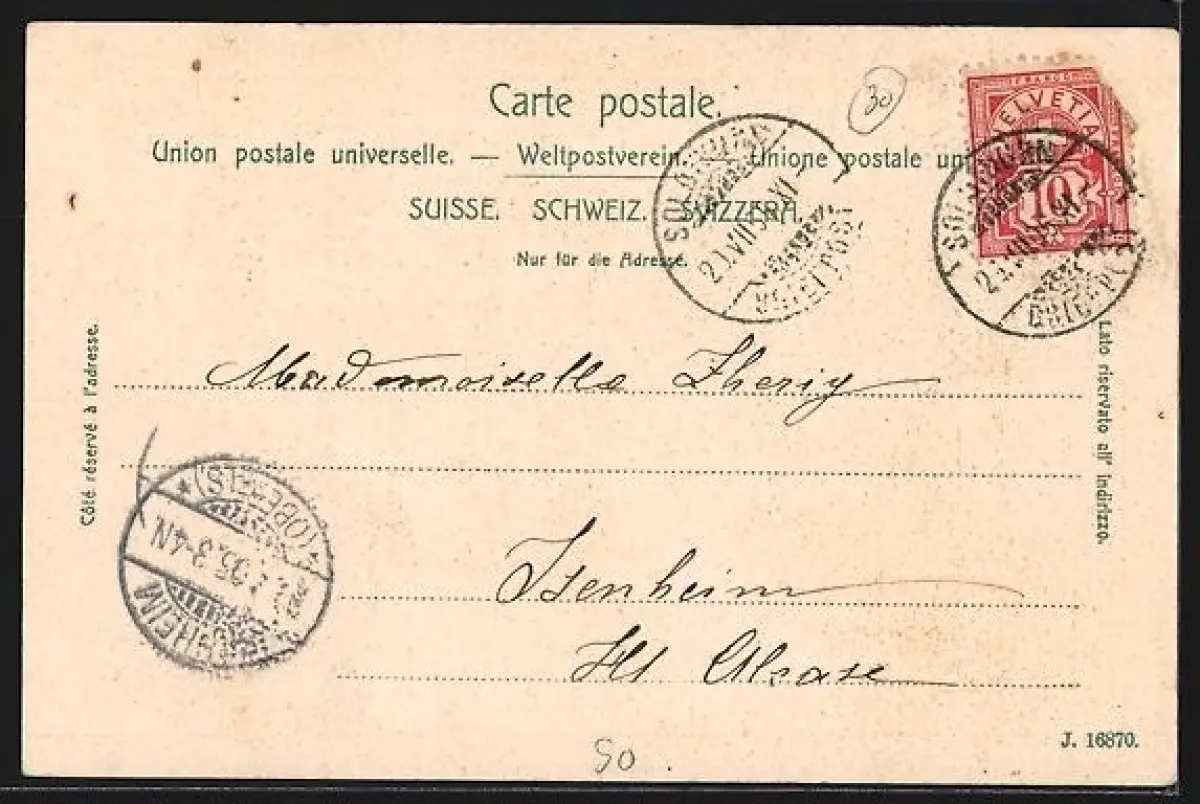 Carte postale.
30
Union postale universelle. — Weltpostverein. — Unione postale un
SUISSE. SCHWEIZ. SVIZZERA.
Nur für die Adresse.
FRANCO
HELVETIA
10
SOLOTHURN
BRIEFPOST
SOLOTHURN
BRIEFPOST
Côté réservé à l'adresse.
Lato riservato all' indirizzo.
Mademoiselle Zherig
Isenheim
Ht Alsace
(OBERELS)
3-4N
HEIM
J. 16870.
50